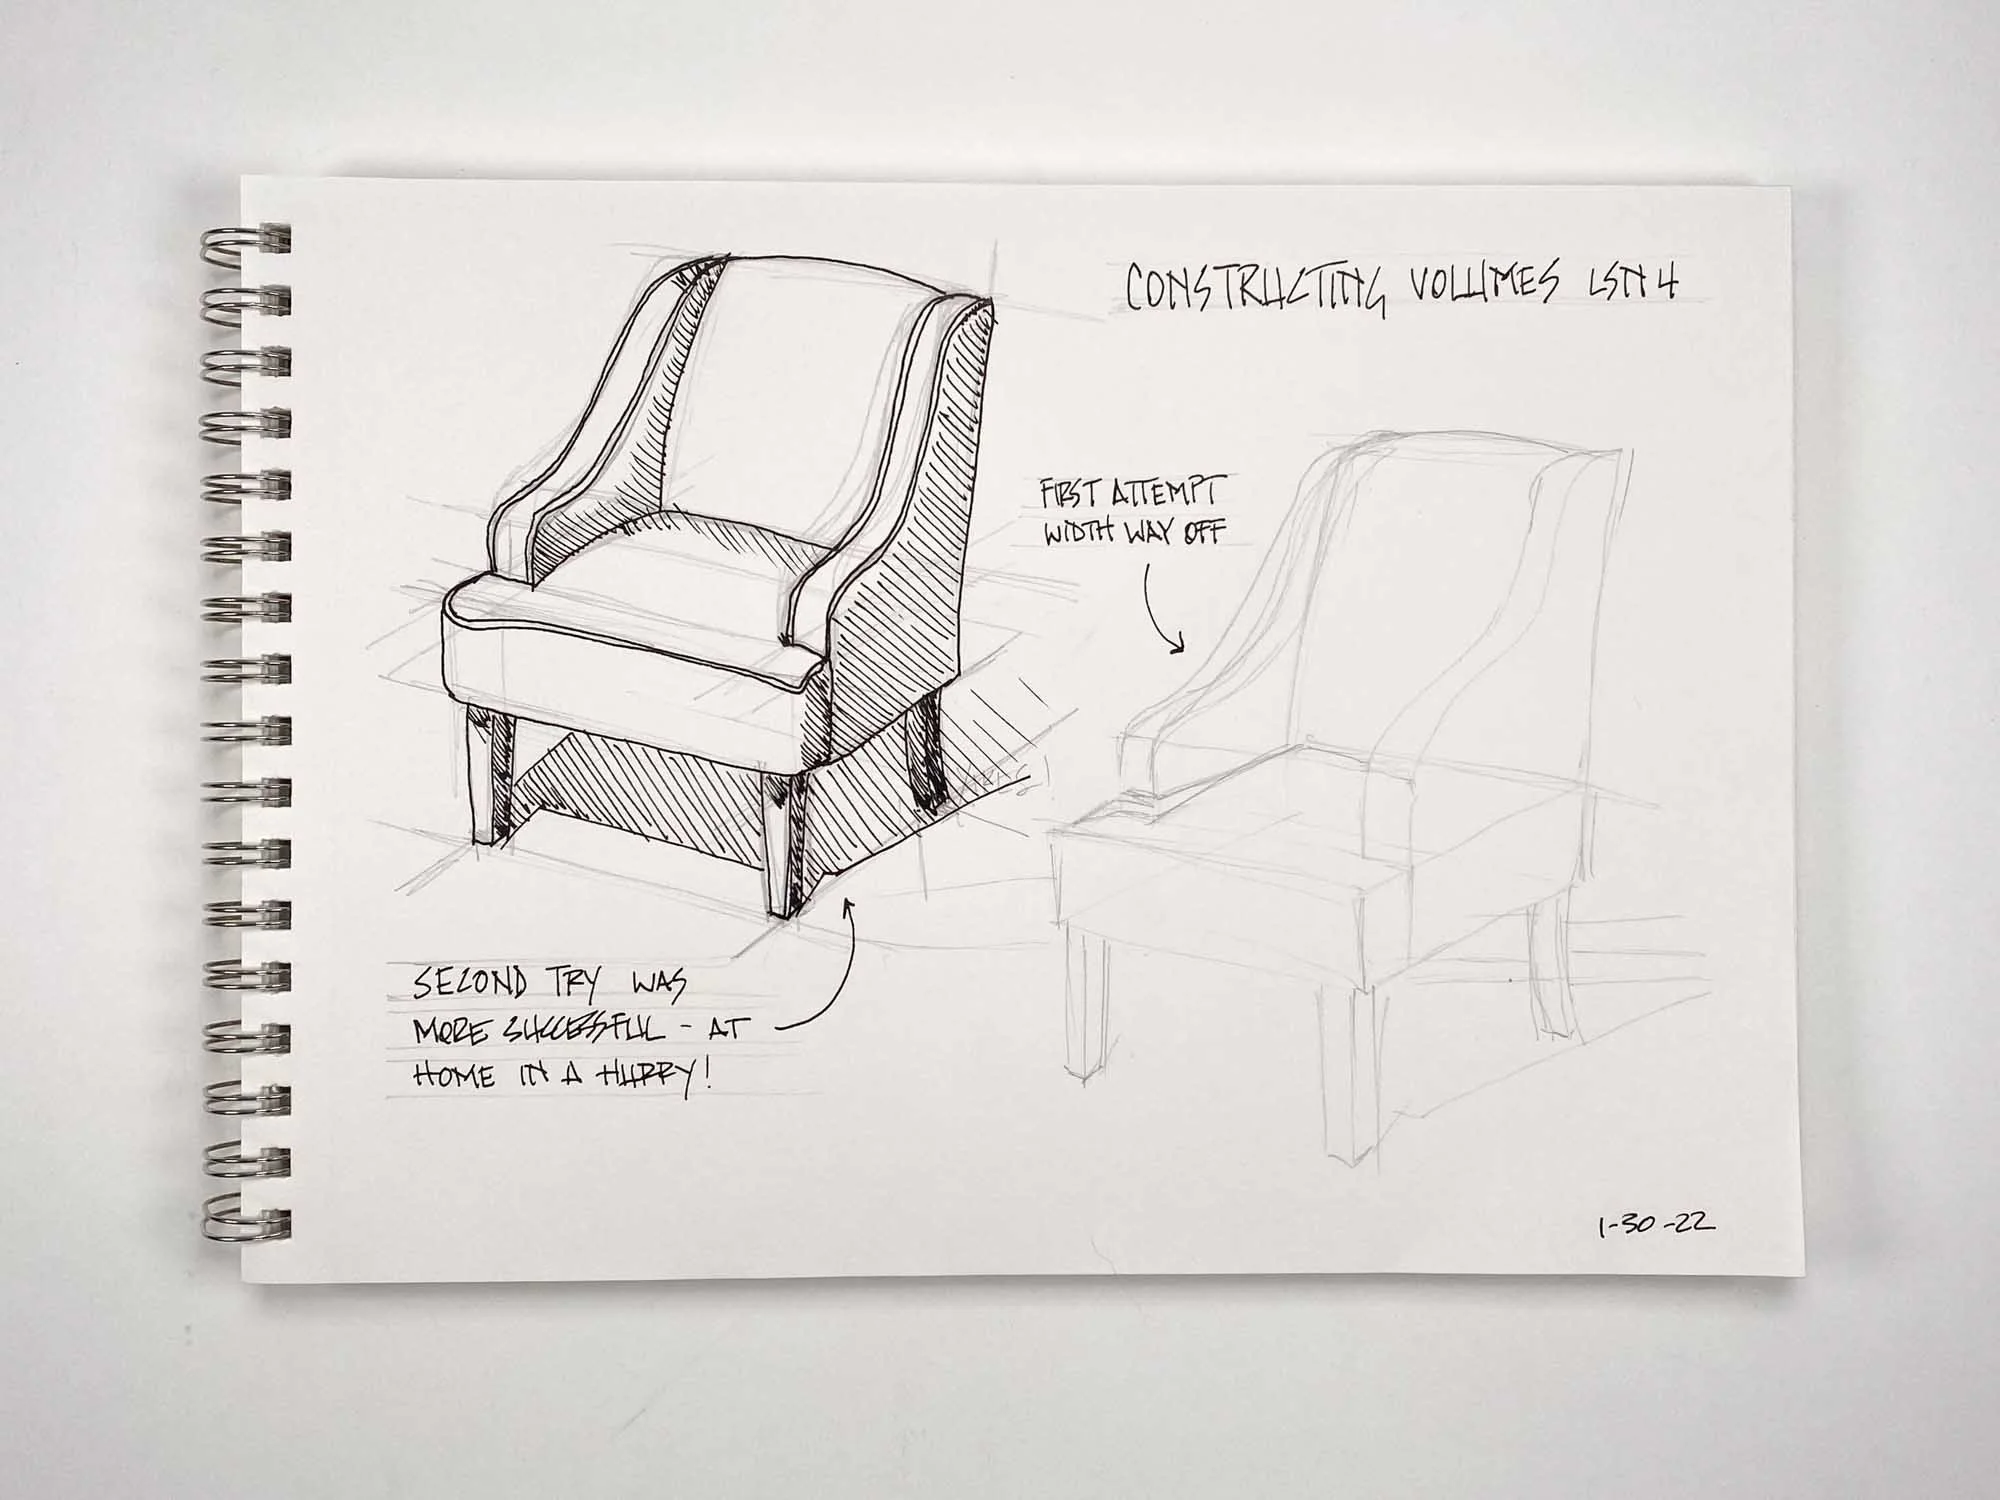 CONSTRUCTING VOLUMES LSN 4
FIRST ATTEMPT
WIDTH WAY OFF
SECOND TRY WAS
MORE SUCCESSFUL - AT
HOME IN A HURRY!
1-30-22